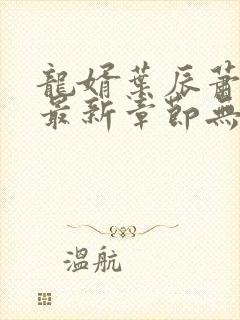 龍婿葉辰蕭
最新章節無
溫航